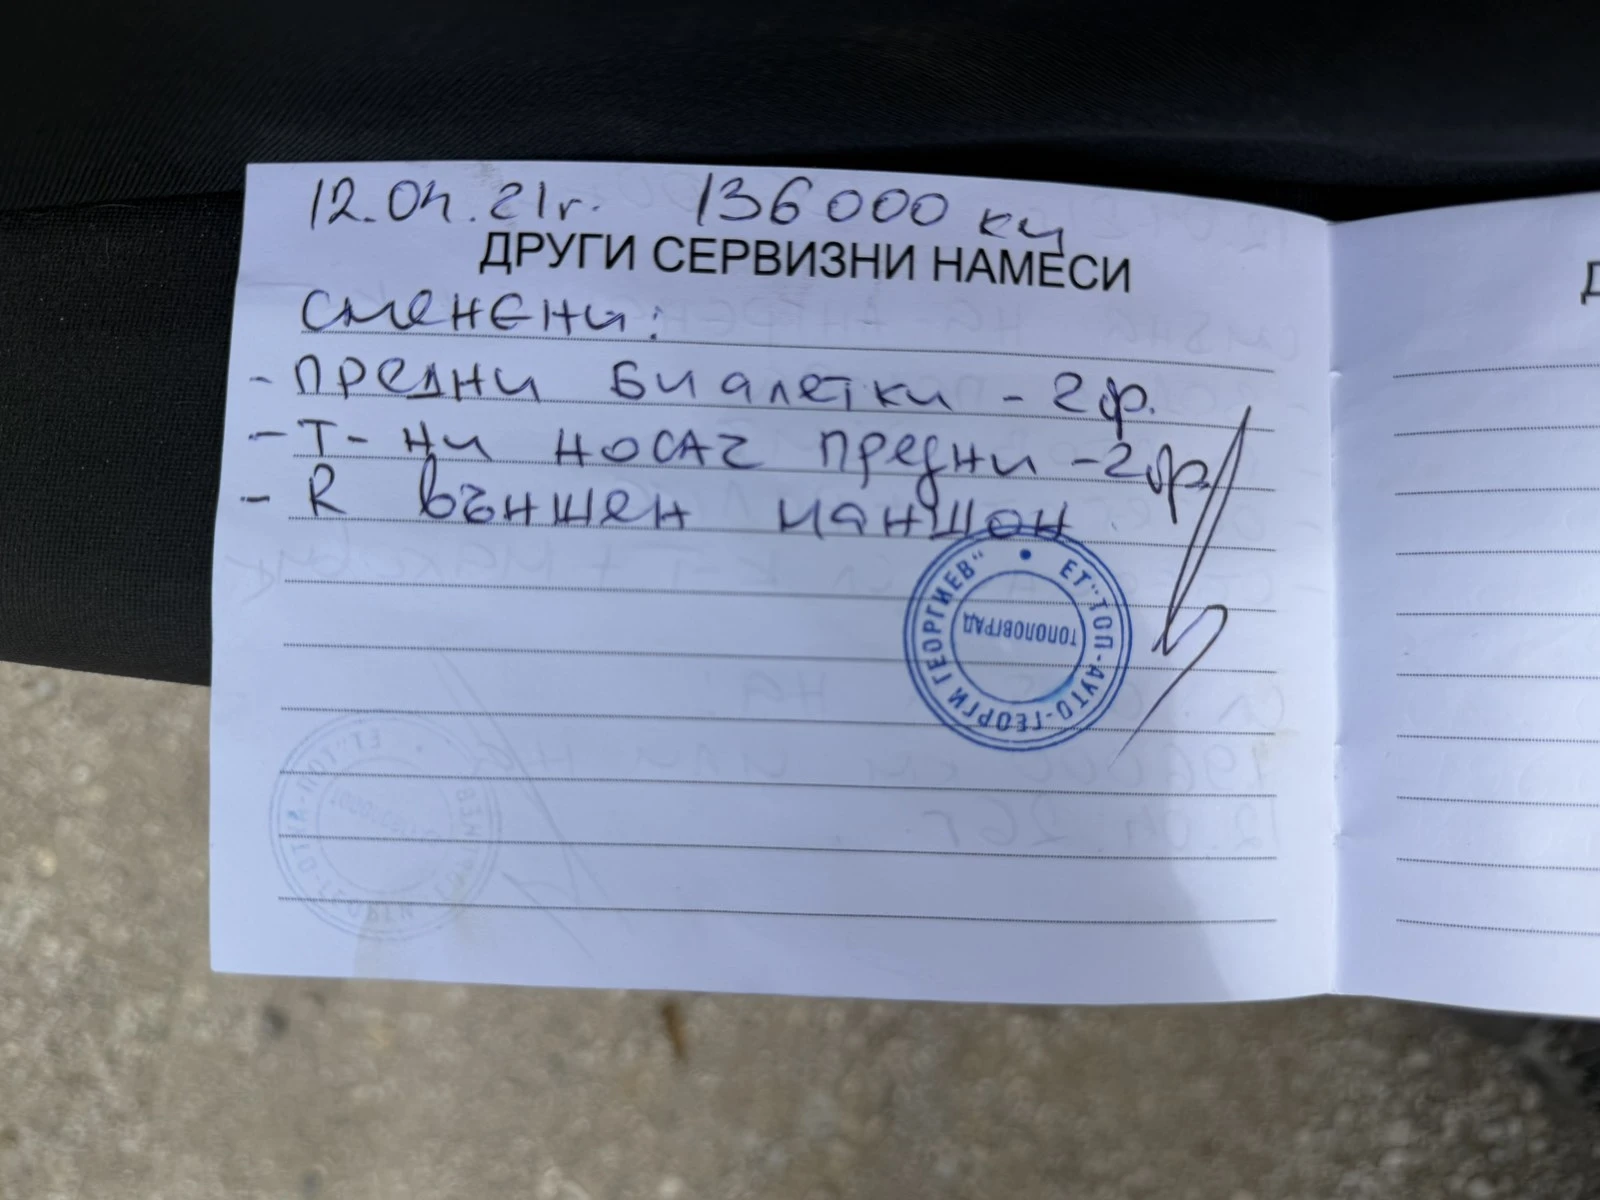 12.04.21г. 136000 км
ДРУГИ СЕРВИЗНИ НАМЕСИ
сменени:
- предни биалетки - 2 бр.
- Т-ни носач предни - 2 бр.
- R външен маншон
ЕТ "ТОП-АУТО-ГЕОРГИ ГЕОРГИЕВ"
ТОПОЛОВГРАД
Д